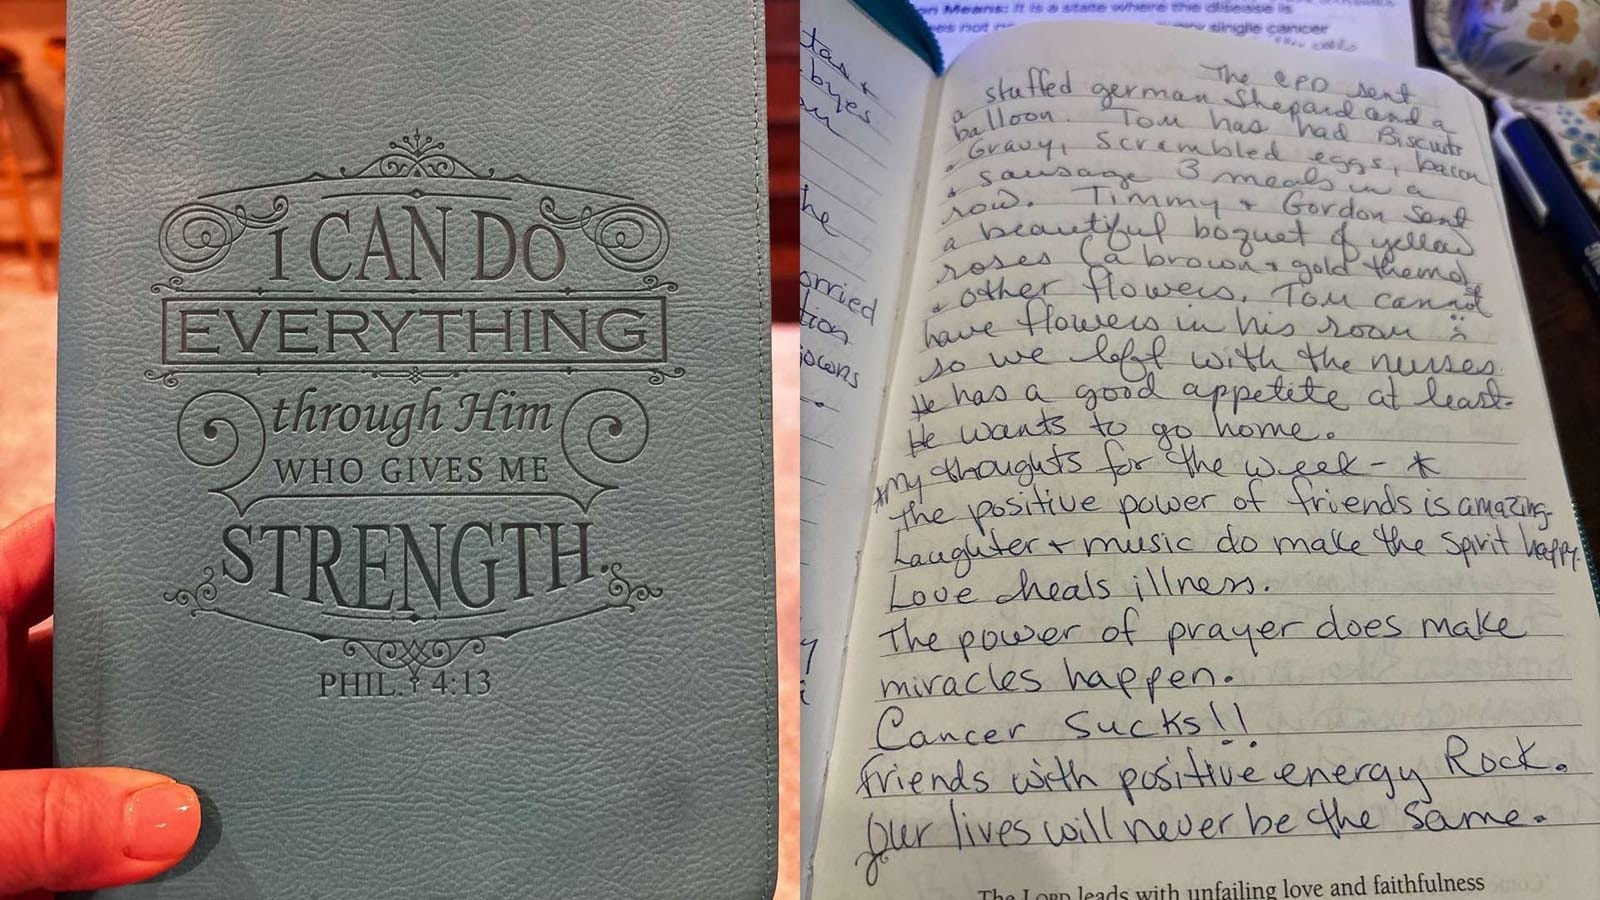 I CAN DO
EVERYTHING
through Him
WHO GIVES ME
STRENGTH.
PHIL. 4:13
on Means: It is a state where the disease is
single cancer
tas +
byes
he
orried
tion
The EPD sent
a stuffed german Shepard and a
balloon. Tom has had Biscuits
+ Gravy, Scrambled eggs, bacon
+ sausage 3 meals in a
row. Timmy + Gordon sent
a beautiful boquet of yellow
roses (a brown + gold theme)
+ other flowers. Tom cannot
have flowers in his room :(
so we left with the nurses.
He has a good appetite at least.
He wants to go home.
*My thoughts for the week - *
The positive power of friends is amazing.
Laughter + music do make the Spirit happy.
Love heals illness.
The power of prayer does make
miracles happen.
Cancer Sucks!!
Friends with positive energy Rock.
Our lives will never be the same.
The LORD leads with unfailing love and faithfulness